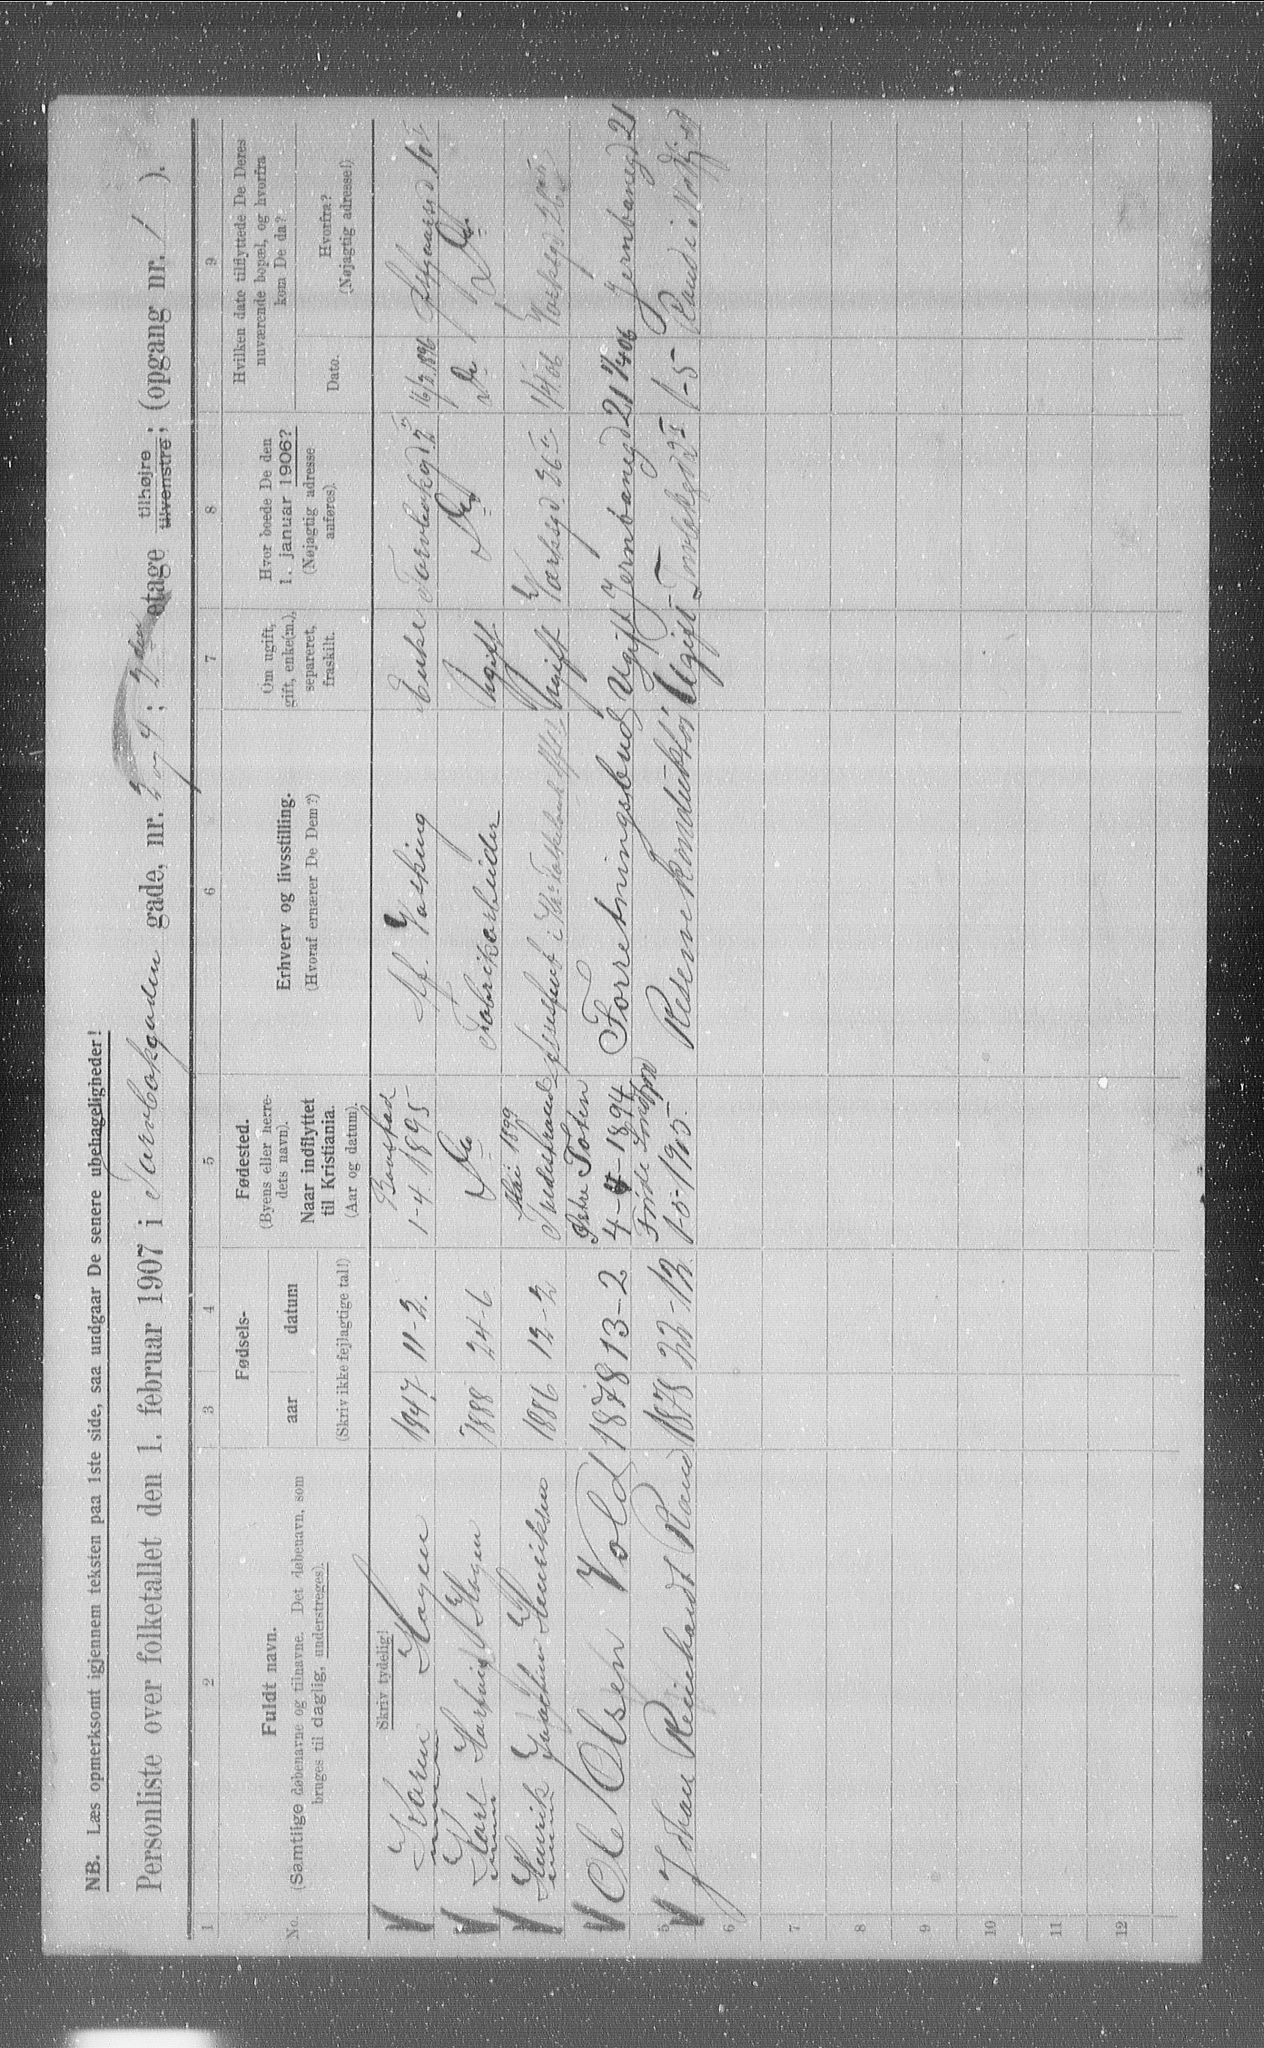 NB. Læs opmerksomt igjennem teksten paa 1ste side, saa undgaar De senere ubehageligheder!
Personliste over folketallet den 1. februar 1907 i Tarvbakgaden gade, nr. 2 og 4; 2den etage tilhøjre tilvenstre; (opgang nr. 1 ).
1 2 3 4 5 6 7 8 9
No.
Fuldt navn.
(Samtlige døbenavne og tilnavne. Det døbenavn, som
bruges til daglig, understreges).
Fødsels-
aar datum
(Skriv ikke fejlagtige tal!)
Fødested.
(Byens eller herre-
dets navn).
Naar indflyttet
til Kristiania.
(Aar og datum).
Erhverv og livsstilling.
(Hvoraf ernærer De Dem?)
Om ugift,
gift, enke(m.),
separeret,
fraskilt.
Hvor boede De den
1. januar 1906?
(Nøjagtig adresse
anføres).
Hvilken dato tilflyttede De Deres
nuværende bopæl, og hvorfra
kom De da?
Dato.
Hvorfra?
(Nøjagtig adresse!)
Skriv tydelig!
Karen Hagen 1847 11-2. 1-4 1895 Af. Vasking Enke 16/3 896
Karl Hartvig Hagen 1888 24-6 Do Fabrikarbeider Ugift Do Do Do
Henrik Joachim Henriksen 1886 12-2 Mai 1899 Ugift Værksgd. 26 1/4 06 Værksgd. 26
Ole Olsen Vold 1878 13-2 Østre Toten 4-4-1894 Forretningsbud Ugift Jernbanegd 21 1/4 06 Jernbanegd 21
5 Johan Reinhardt Rand 1878 22-12. 1-5-1905. Reservekonduktør Ugift 1-5 Rand i
6
7
8
9
10
11
12